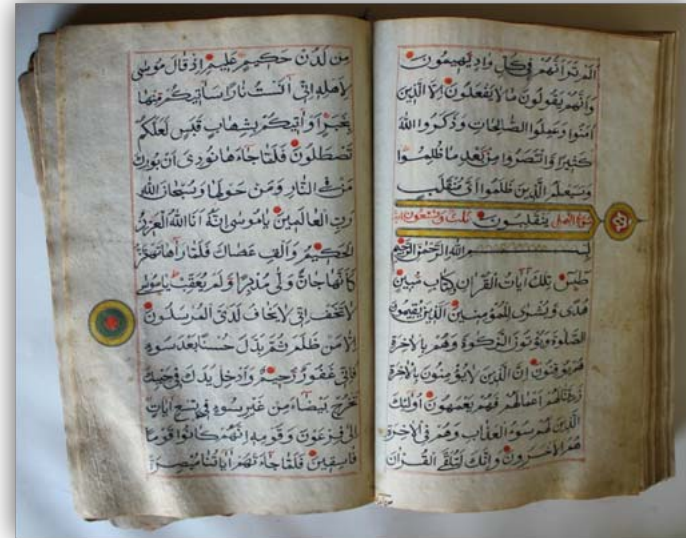 اَلَمْ تَرَ اَنَّهُمْ فِي كُلِّ وَادٍ يَهِيمُونَ
وَاَنَّهُمْ يَقُولُونَ مَا لَا يَفْعَلُونَ اِلَّا الَّذِينَ
اٰمَنُوا وَعَمِلُوا الصَّالِحَاتِ وَذَكَرُوا اللّٰهَ
كَثِيرًا وَانْتَصَرُوا مِنْ بَعْدِ مَا ظُلِمُوا
وَسَيَعْلَمُ الَّذِينَ ظَلَمُوا اَيَّ مُنْقَلَبٍ
يَنْقَلِبُونَ سورة النمل ثلث وتسعون
بِسْمِ اللّٰهِ الرَّحْمٰنِ الرَّحِيمِ
طٰسٓ تِلْكَ اٰيَاتُ الْقُرْاٰنِ وَكِتَابٍ مُبِينٍ
هُدًى وَبُشْرٰى لِلْمُؤْمِنِينَ الَّذِينَ يُقِيمُونَ
الصَّلٰوةَ وَيُؤْتُونَ الزَّكٰوةَ وَهُمْ بِالْاٰخِرَةِ
هُمْ يُوقِنُونَ اِنَّ الَّذِينَ لَا يُؤْمِنُونَ بِالْاٰخِرَةِ
زَيَّنَّا لَهُمْ اَعْمَالَهُمْ فَهُمْ يَعْمَهُونَ اُولٰئِكَ
الَّذِينَ لَهُمْ سُوءُ الْعَذَابِ وَهُمْ فِي الْاٰخِرَةِ
هُمُ الْاَخْسَرُونَ وَاِنَّكَ لَتُلَقَّى الْقُرْاٰنَ
مِنْ لَدُنْ حَكِيمٍ عَلِيمٍ اِذْ قَالَ مُوسٰى
لِاَهْلِهِ اِنِّي اٰنَسْتُ نَارًا سَاٰتِيكُمْ مِنْهَا
بِخَبَرٍ اَوْ اٰتِيكُمْ بِشِهَابٍ قَبَسٍ لَعَلَّكُمْ
تَصْطَلُونَ فَلَمَّا جَاءَهَا نُودِيَ اَنْ بُورِكَ
مَنْ فِي النَّارِ وَمَنْ حَوْلَهَا وَسُبْحَانَ اللّٰهِ
رَبِّ الْعَالَمِينَ يَامُوسٰى اِنَّهُ اَنَا اللّٰهُ الْعَزِيزُ
الْحَكِيمُ وَاَلْقِ عَصَاكَ فَلَمَّا رَاٰهَا تَهْتَزُّ
كَاَنَّهَا جَانٌّ وَلّٰى مُدْبِرًا وَلَمْ يُعَقِّبْ يَامُوسٰى
لَا تَخَفْ اِنِّي لَا يَخَافُ لَدَيَّ الْمُرْسَلُونَ
اِلَّا مَنْ ظَلَمَ ثُمَّ بَدَّلَ حُسْنًا بَعْدَ سُوءٍ
فَاِنِّي غَفُورٌ رَحِيمٌ وَاَدْخِلْ يَدَكَ فِي جَيْبِكَ
تَخْرُجْ بَيْضَاءَ مِنْ غَيْرِ سُوءٍ فِي تِسْعِ اٰيَاتٍ
اِلٰى فِرْعَوْنَ وَقَوْمِهِ اِنَّهُمْ كَانُوا قَوْمًا
فَاسِقِينَ فَلَمَّا جَاءَتْهُمْ اٰيَاتُنَا مُبْصِرَةً